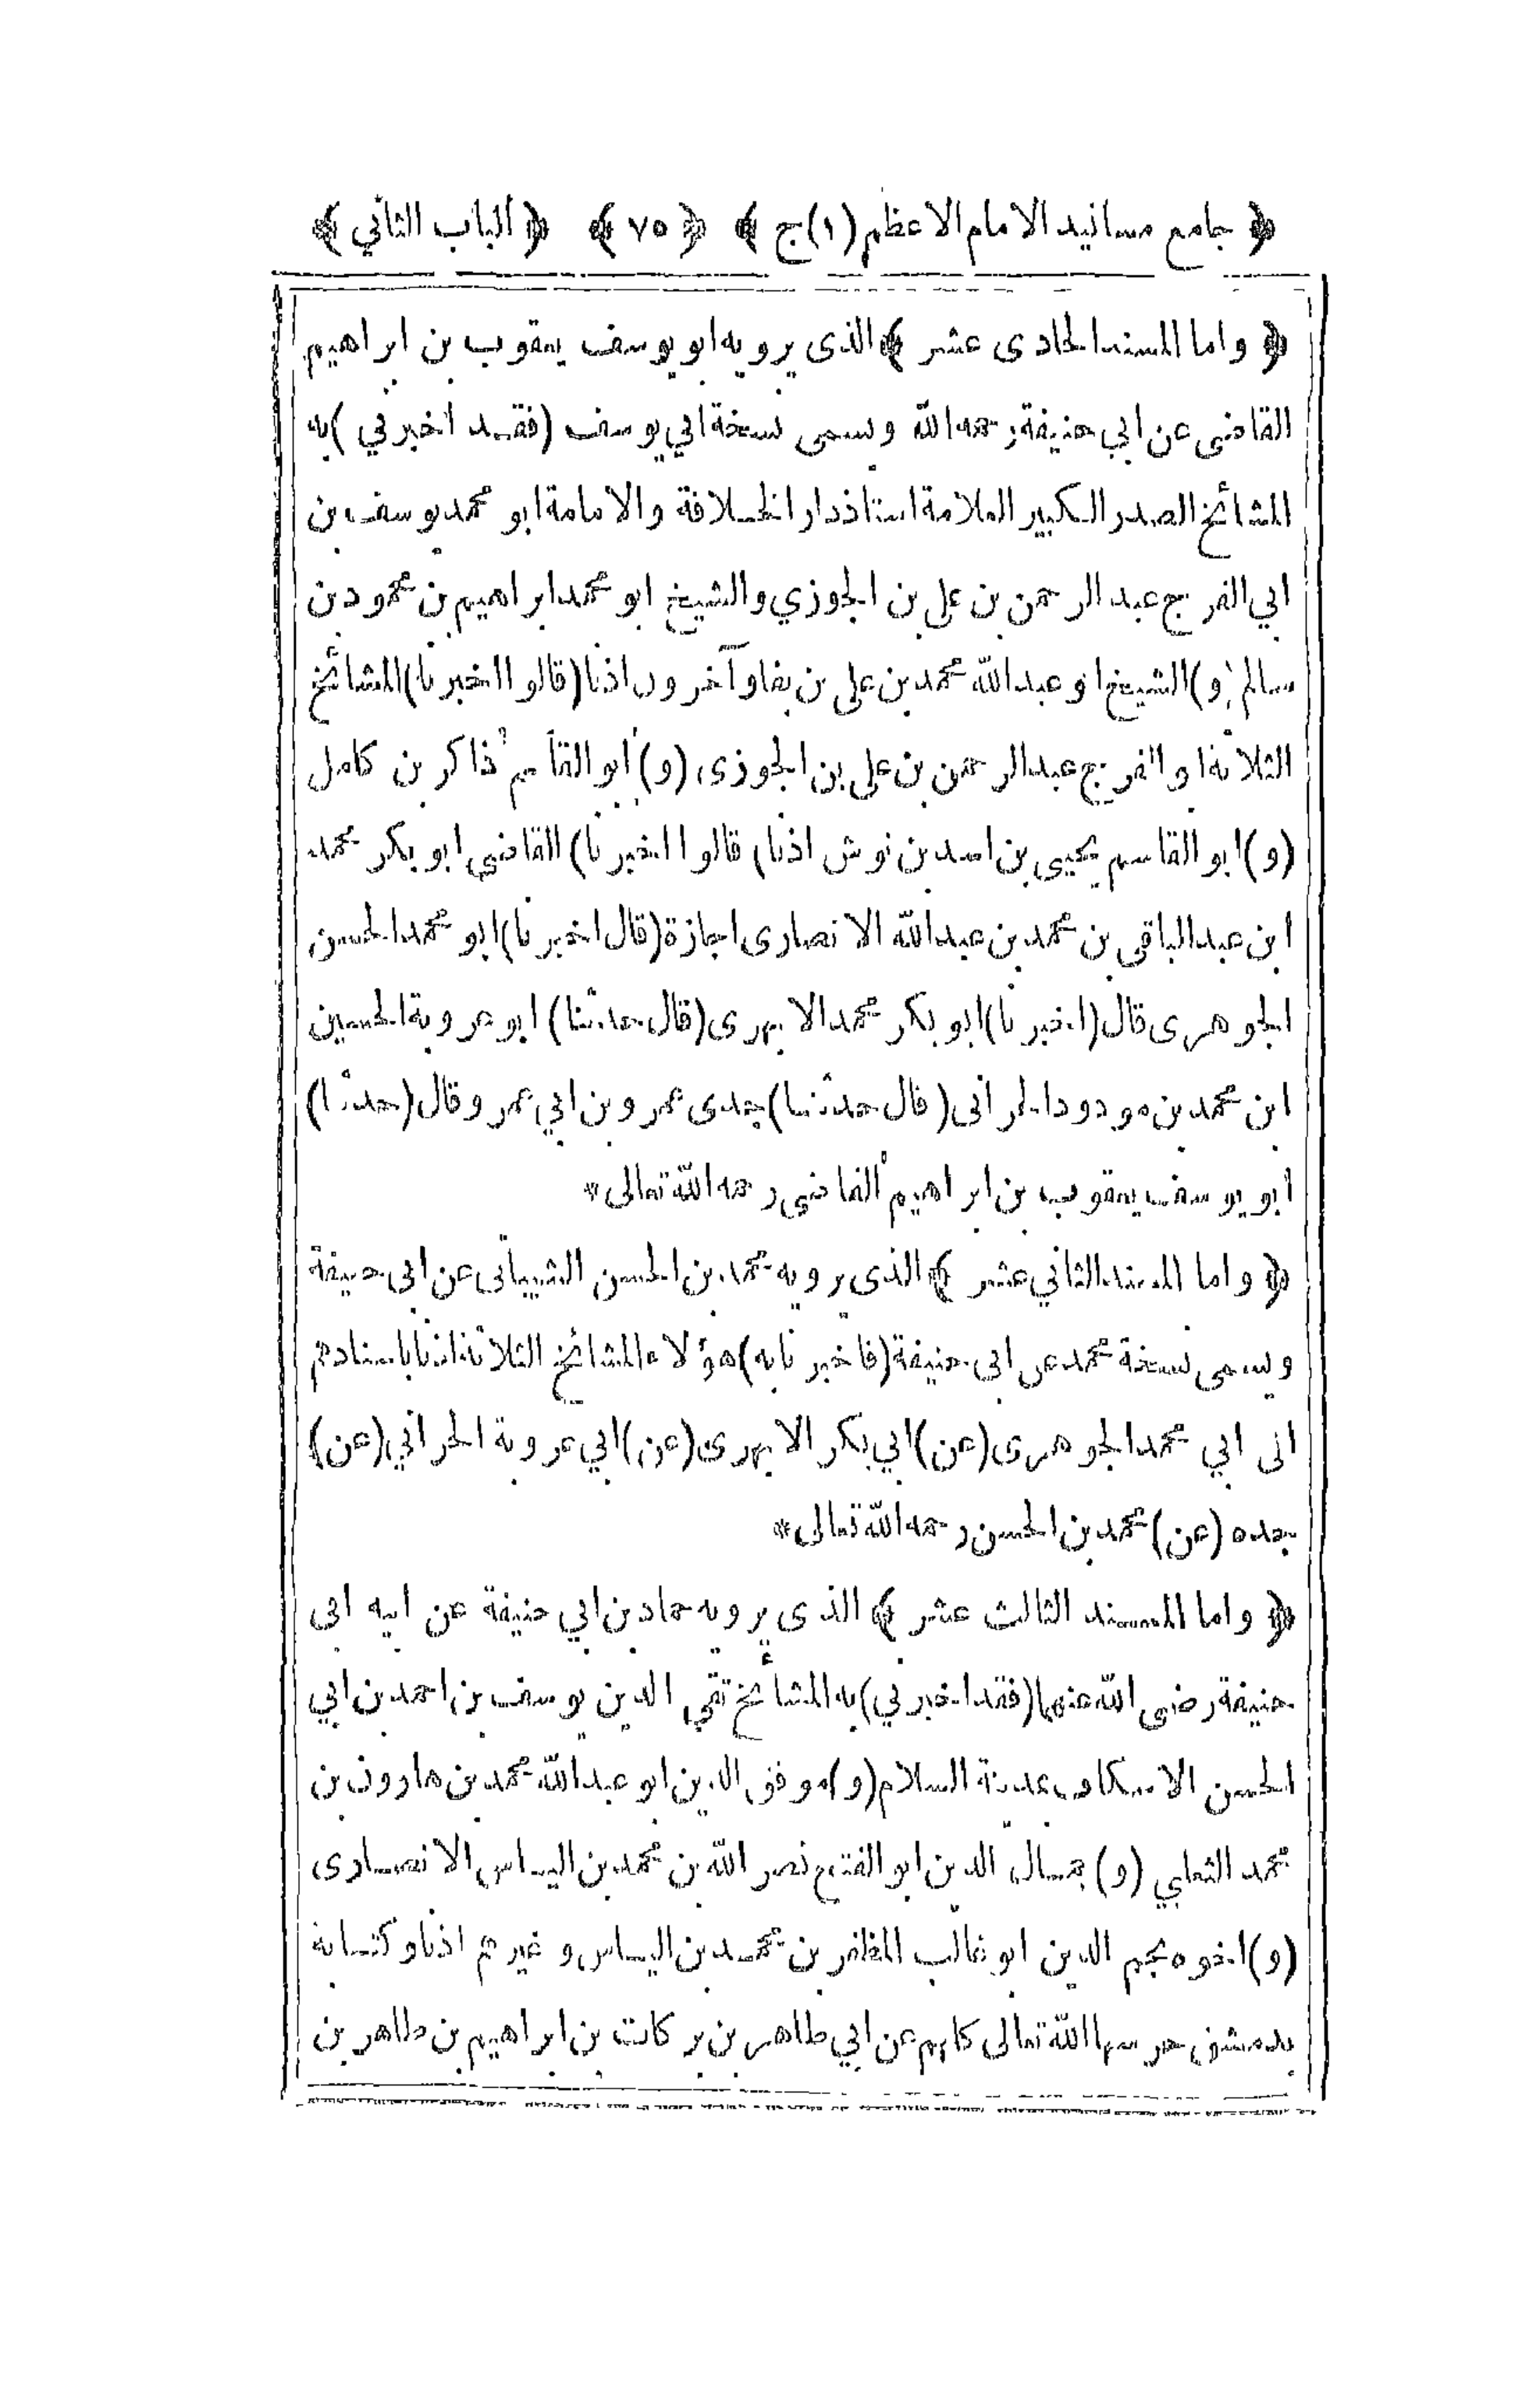 ﴿ جامع مسانيد الامام الاعظم (١) ج ﴾ ﴿ ٧٥ ﴾ ﴿ الباب الثاني ﴾
﴿ واما المسند الحادى عشر ﴾ الذى يرويه ابو يوسف يعقوب بن ابراهيم
القاضى عن ابي حنيفة رحمه الله ويسمى نسخة ابي يوسف (فقد اخبرني) به
المشائخ الصدر الكبير العلامة استاذ دار الخلافة والامامة ابو محمد يوسف بن
ابي الفرج عبد الرحمن بن على بن الجوزي والشيخ ابو محمد ابراهيم بن محمود بن
سالم (و) الشيخ ابو عبد الله محمد بن على بن بقا وآخرون اذنا (قالوا اخبرنا) المشائخ
الثلاثة ابو الفرج عبد الرحمن بن على بن الجوزى (و) ابو القاسم ذاكر بن كامل
(و) ابو القاسم يحيى بن اسد بن نوش اذنا (قالوا اخبرنا) القاضي ابو بكر محمد
ابن عبد الباقى بن محمد بن عبد الله الانصارى اجازة (قال اخبرنا) ابو محمد الحسن
الجوهرى قال (اخبرنا) ابو بكر محمد الابهرى (قال حدثنا) ابو عروبة الحسين
ابن محمد بن مودود الحرانى (قال حدثنا) جدى عمرو بن ابي عمر وقال (حدثنا)
ابو يوسف يعقوب بن ابراهيم القاضى رحمه الله تعالى *
﴿ واما المسند الثاني عشر ﴾ الذى يرويه محمد بن الحسن الشيبانى عن ابى حنيفة
ويسمى نسخة محمد عن ابى حنيفة (فاخبرنا به) هؤلاء المشائخ الثلاثة اذنا باسنادهم
الى ابي محمد الجوهرى (عن) ابي بكر الابهرى (عن) ابي عروبة الحراني (عن)
جده (عن) محمد بن الحسن رحمه الله تعالى *
﴿ واما المسند الثالث عشر ﴾ الذى يرويه حماد بن ابي حنيفة عن ابيه ابى
حنيفة رضى الله عنهما (فقد اخبرني) به المشائخ تقي الدين يوسف بن احمد بن ابي
الحسن الاسكاف بمدينة السلام (و) موفق الدين ابو عبد الله محمد بن هارون بن
محمد الثعلبي (و) جمال الدين ابو الفتح نصر الله بن محمد بن الياس الانصارى
(و) اخوه نجم الدين ابو غالب المظفر بن محمد بن الياس وغيرهم اذنا وكتابة
بدمشق حرسها الله تعالى كلهم عن ابي طاهر بن بركات بن ابراهيم بن طاهر بن